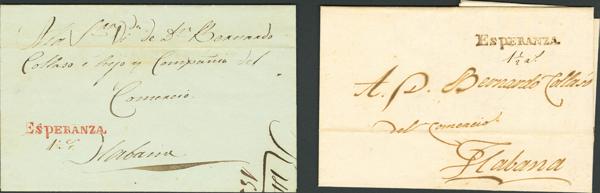 de Dn Bernardo
Collaso e hijo y Compañia del
Comercio
ESPERANZA
Habana
ESPERANZA
A. D. Bernardo Collaso
del comercio
Habana